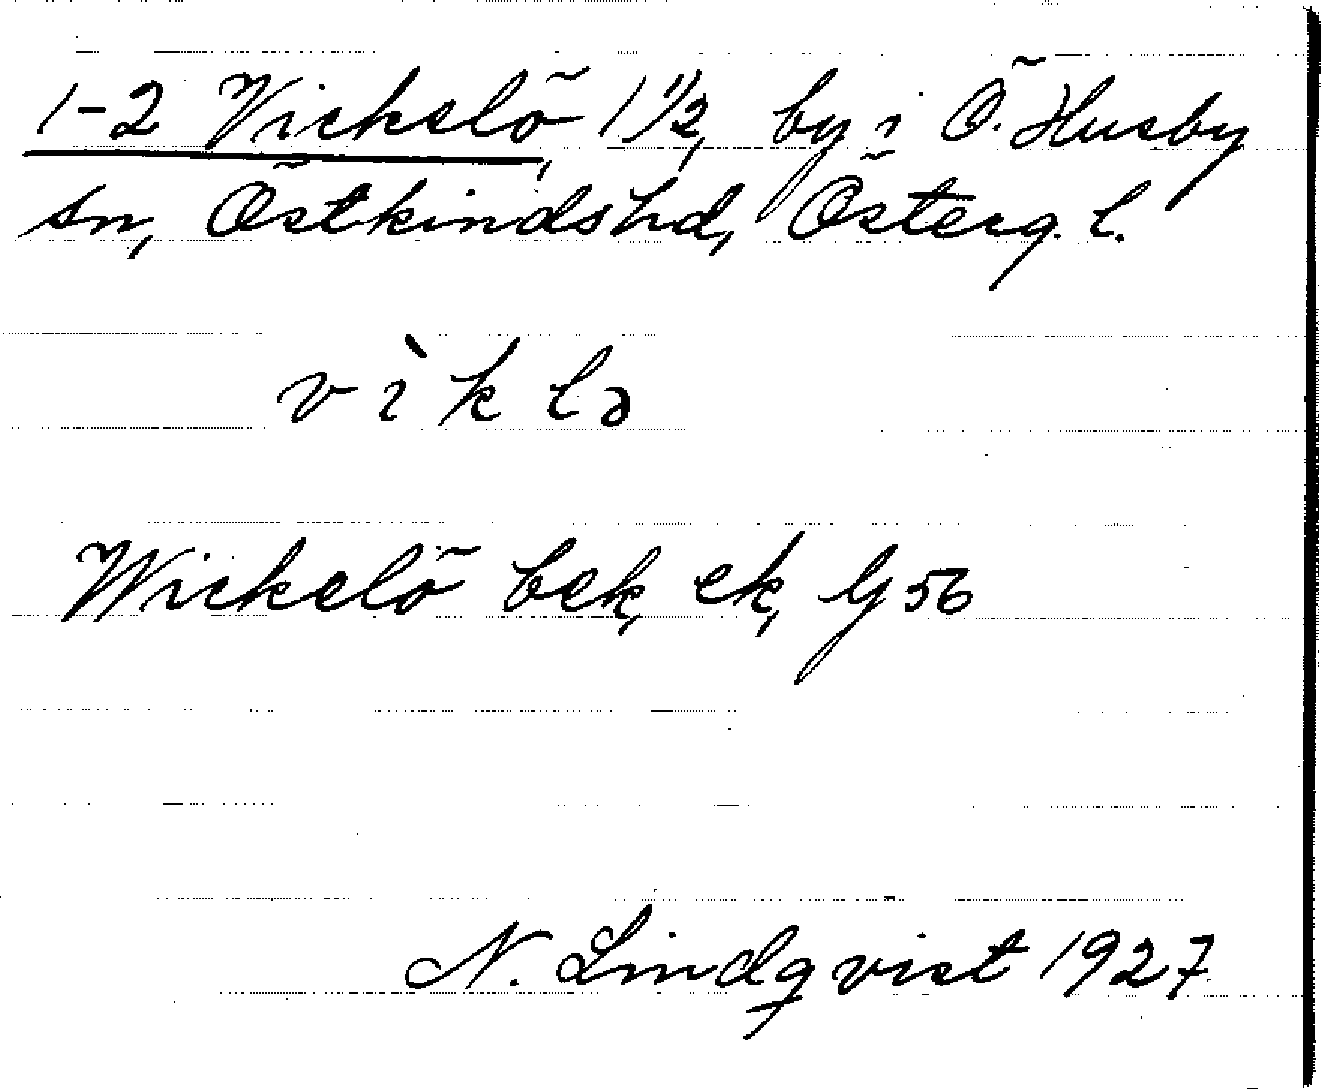 1-2 Vickelö, 1 1/2, by i Ö. Husby
sn, Östkinds hd, Österg. l.
vìklə
Wickelö bek, ek, G 56
N. Lindqvist 1927